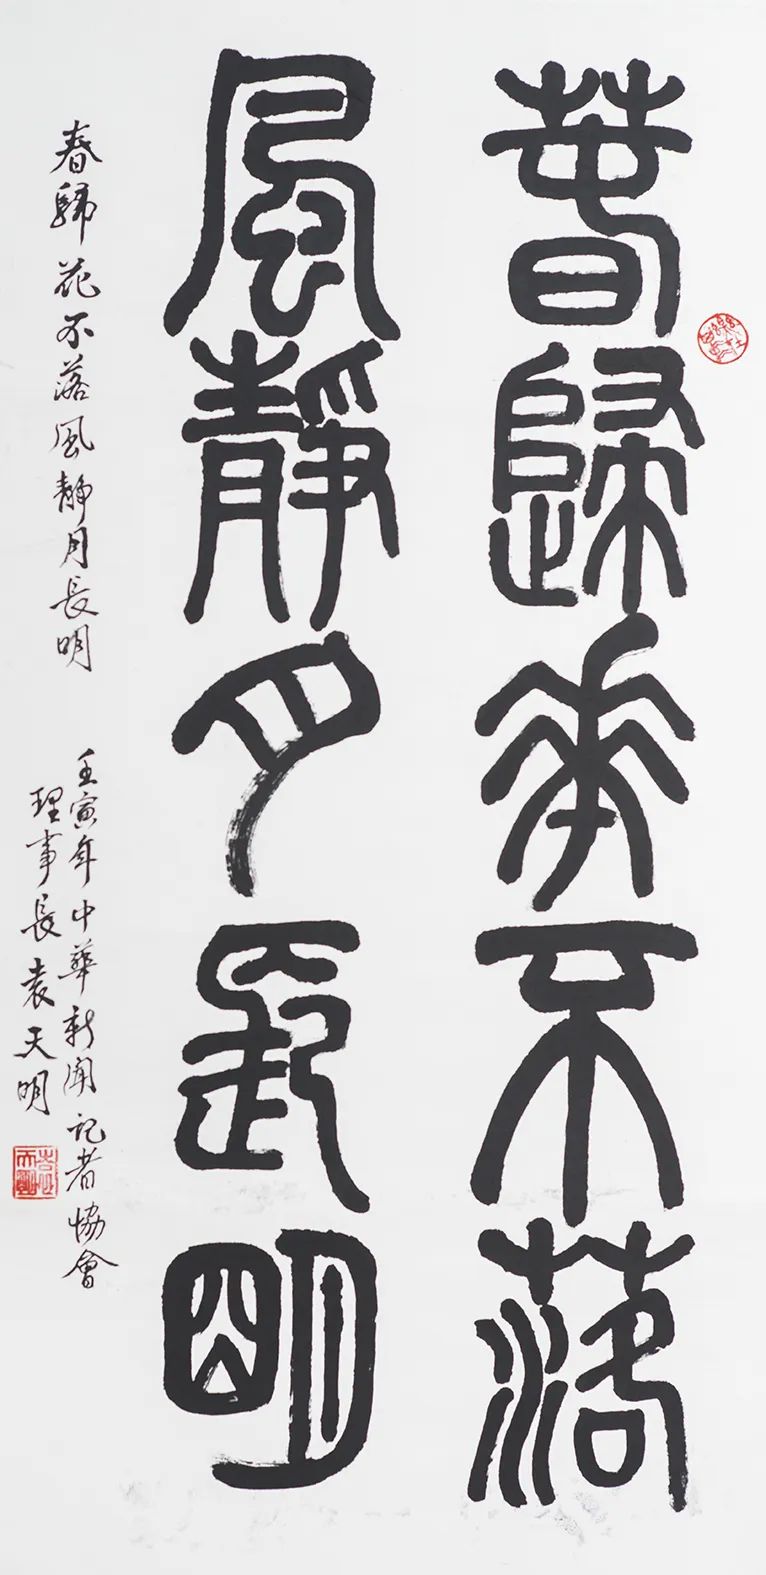 春歸花不落
風靜月長明
春歸花不落風靜月長明
壬寅年中華新聞記者協會
理事長袁天明